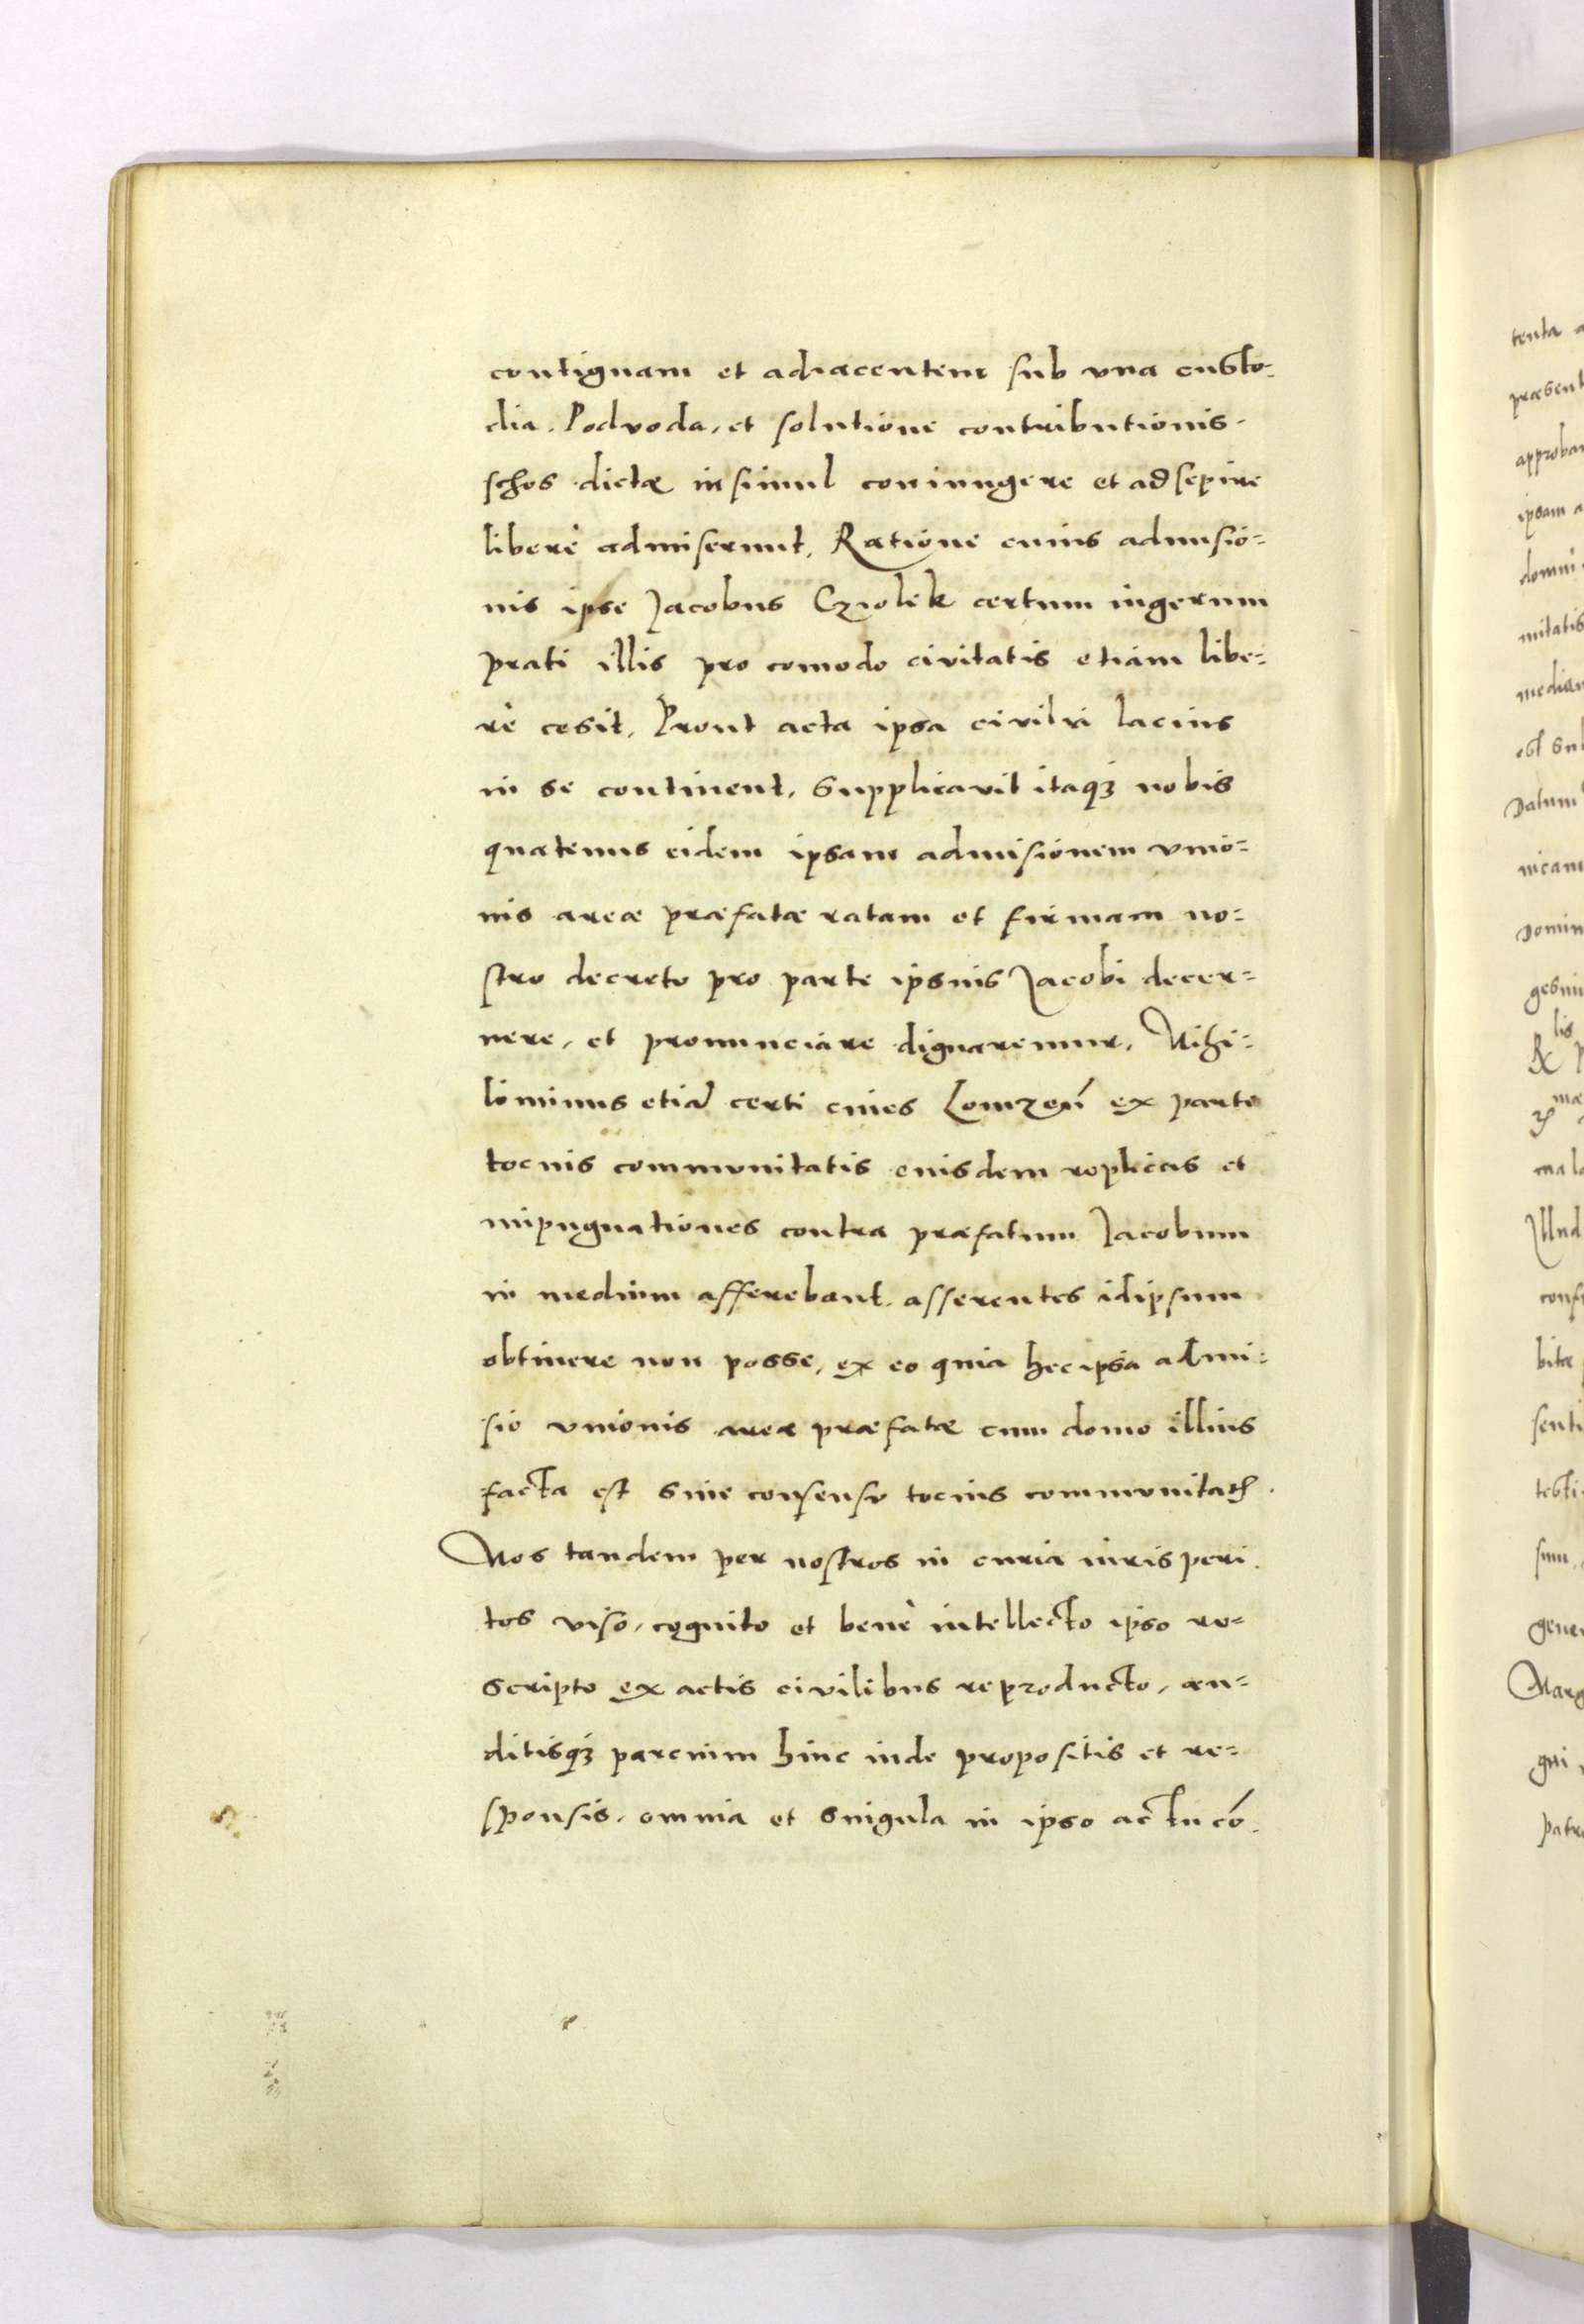 contiguam et adiacentem sub vna custo-
dia, Podvoda, et solutione contributionis
schos dictæ insimul coniungere et adsepire
liberè admiserunt, Ratione cuius admisio-
nis ipse Jacobus Cziolek certum iugerum
prati illis pro comodo civitatis etiam libe-
rè cesit, Prout acta ipsa civilia lacius
in se continent, Supplicavit itaq3 nobis
quatenus eidem ipsam admisionem vnio-
nis areæ præfatæ ratam et firmam no-
stro decreto pro parte ipsius Jacobi decer-
nere, et pronunciare dignaremur, Nihi-
lominus etiā certi cives Lomzeń ex parte
tocius communitatis eiusdem replicas et
impugnationes contra præfatum Jacobum
in medium afferebant, asserentes idipsum
obtinere non posse, ex eo quia hec ipsa admi-
sio vnionis areæ præfatæ cum domo illius
facta est sine consensv tocius communitatꝭ
Nos tandem per nostros in curia iurisperi
tos viso, cognito et benè intellecto ipso re-
scripto ex actis civilibus reproducto, au-
ditisq3 parcium hinc inde propositis et re-
sponsis, omnia et singula in ipso actu cō

tenta
præsent
approban
ipsam a
domui
nitatis
median
est sub
Datum
nicam
Domin
gesimi
lis
Rx
mæ
mala
Illud
confi
bitæ
senti
testi
sum
gener
Marg
gni
patr